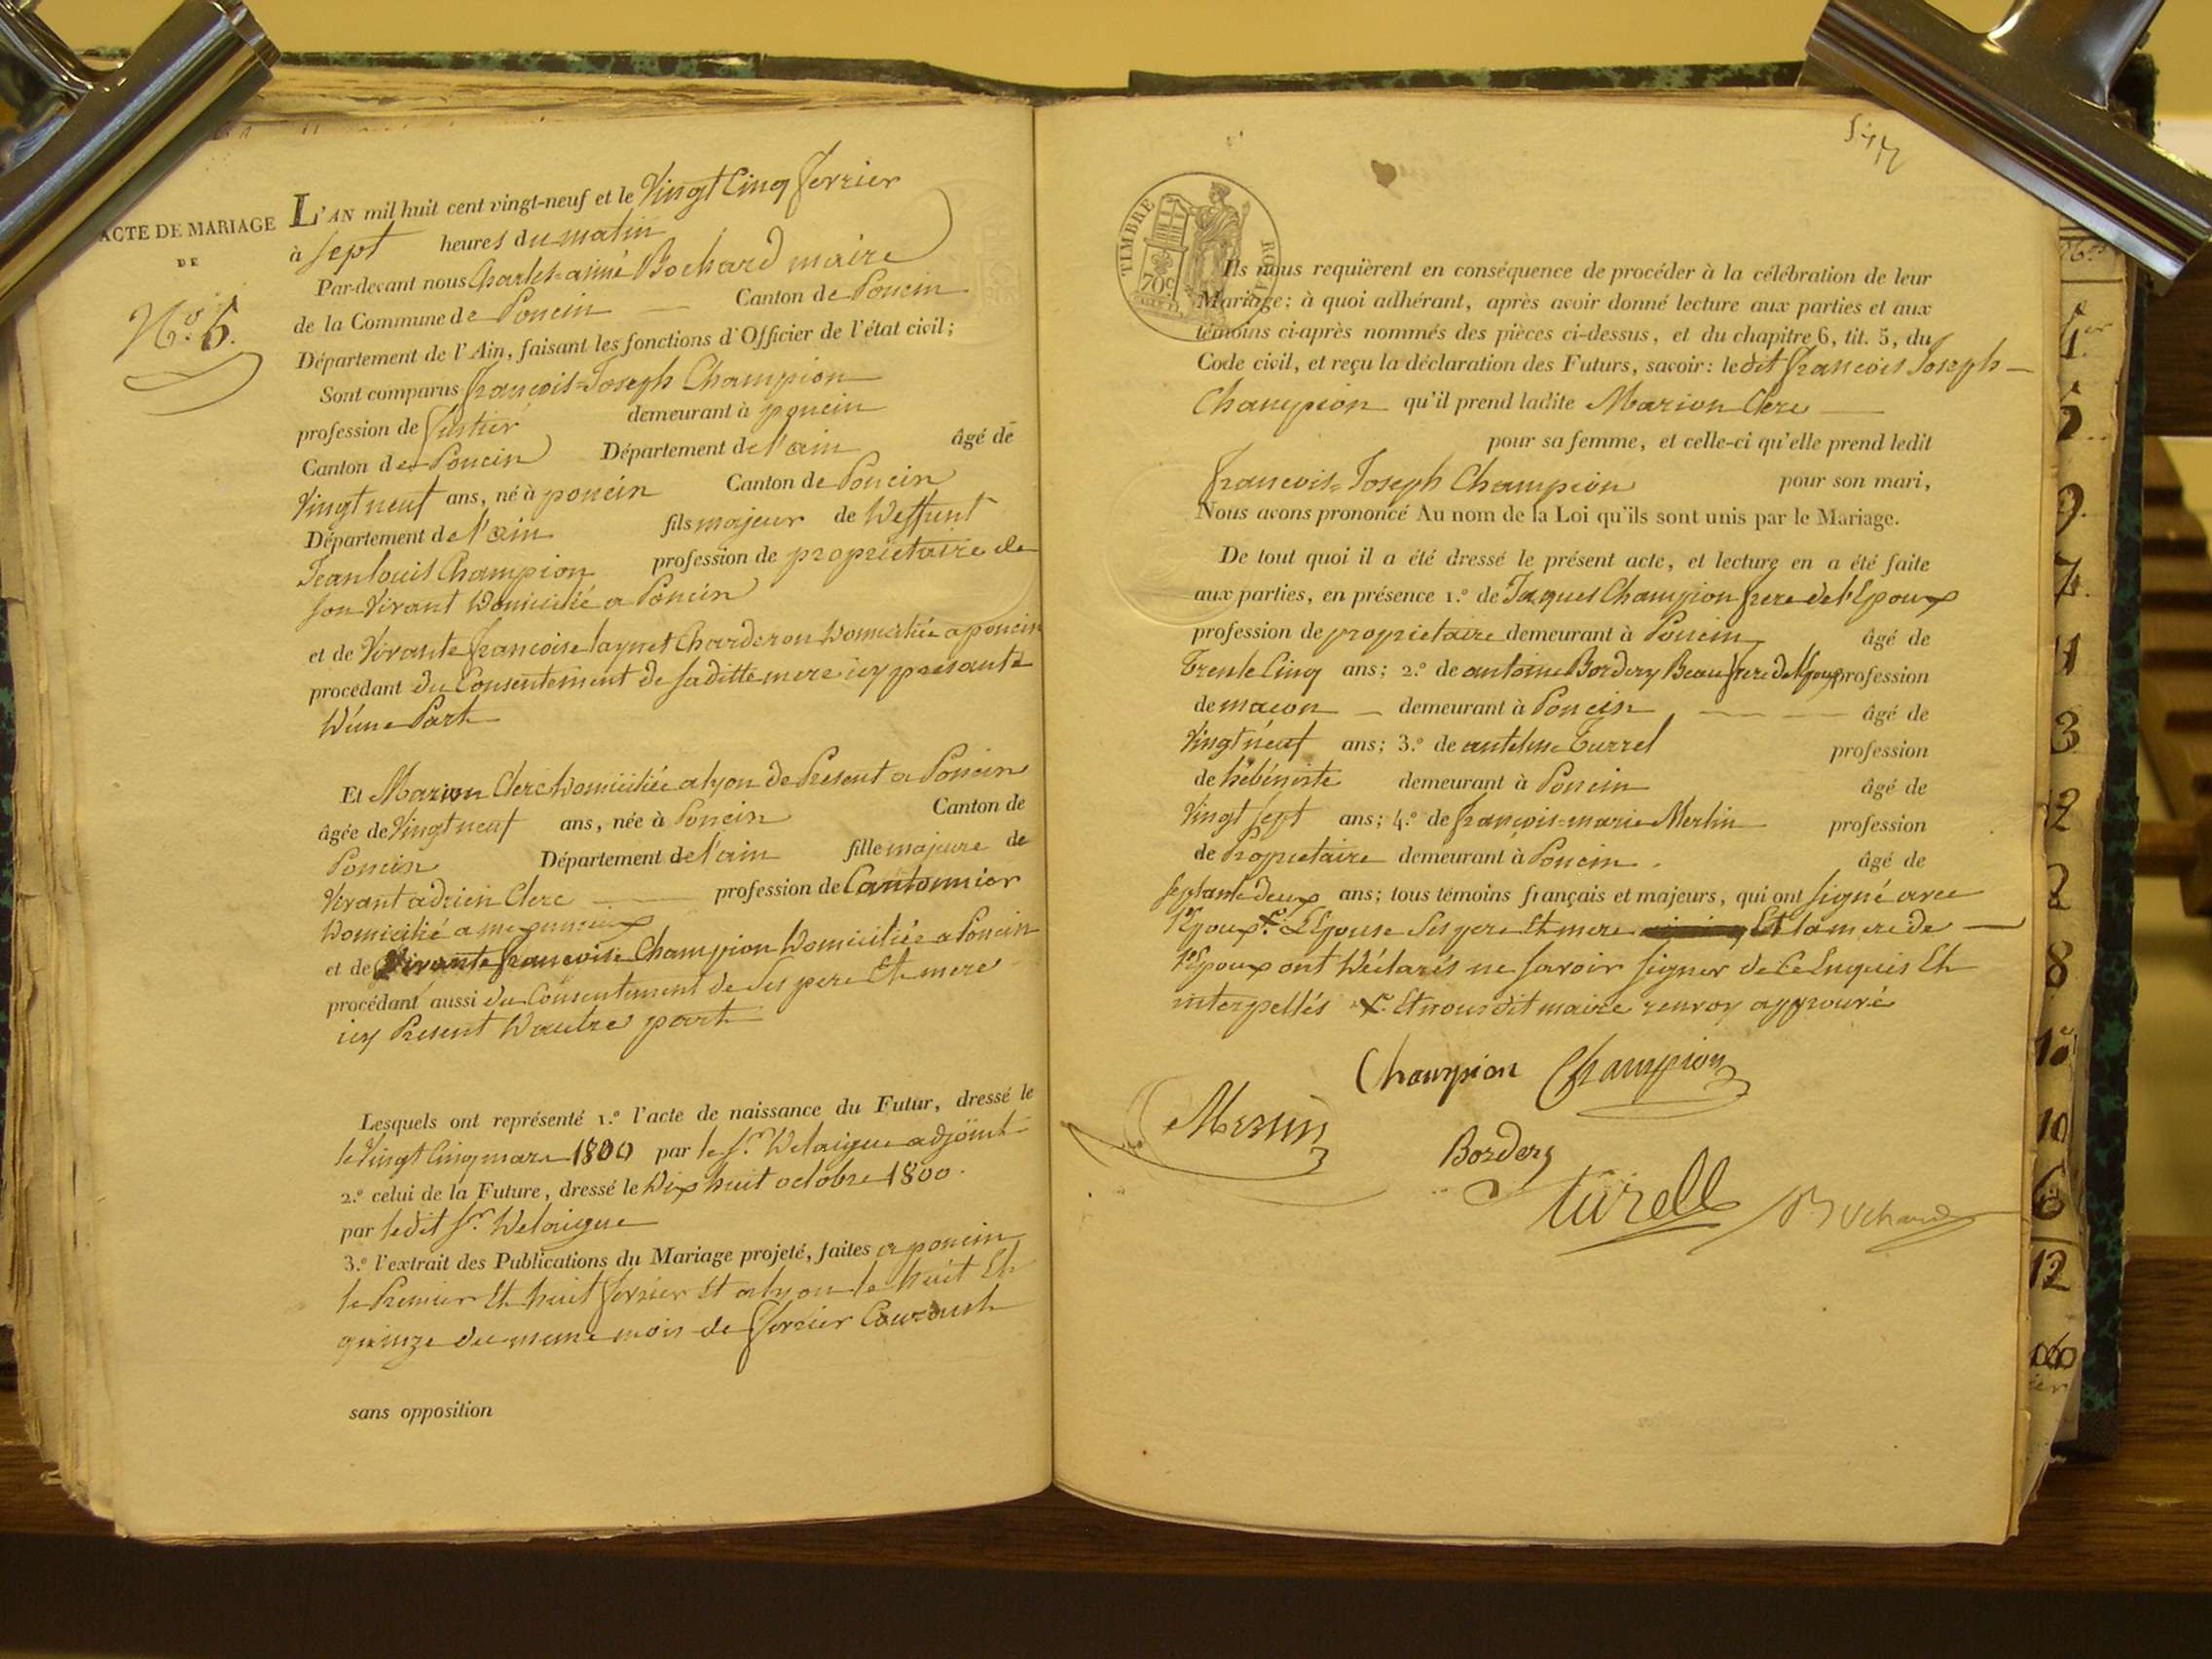 ACTE DE MARIAGE
DE
N.º 5.
L'AN mil huit cent vingt-neuf et le Vingt Cinq fevrier
à sept heures du matin
Par-devant nous Charles=aimé Bochard maire
de la Commune de Poncin Canton de Poncin
Département de l'Ain, faisant les fonctions d'Officier de l'état civil;
Sont comparus françois=Joseph Champion
profession de demeurant à poncin
Canton de Poncin Département de l'ain âgé de
Vingt neuf ans, né à poncin Canton de Poncin
Département de l'ain fils majeur de Deffunt
Jean louis Champion profession de proprietaire de
son Vivant Domicilié a Poncin
et de Vivante francoise Charderon Domiciliée a poncin
procédant du Consentement de saditte mere icy presante
D'une Part
Et Marion Clerc Domiciliée a lyon de Present a Poncin
âgée de Vingt neuf ans, née à Poncin Canton de
Poncin Département de l'ain fille majeure de
Vivant adrien Clerc profession de Cantonnier
Domicilié a
et de Vivante francoise Champion Domiciliée a Poncin
procédant aussi du Consentement de ses pere Et mere
icy Present D'autre part
Lesquels ont représenté 1.º l'acte de naissance du Futur, dressé le
le Vingt Cinq mars 1800 par le Sr. Delaigue adjoint
2.º celui de la Future, dressé le Dix huit octobre 1800.
par ledit Sr. Delaigue
3.º l'extrait des Publications du Mariage projeté, faites a poncin
le Premier Et huit fevrier Et a lyon le huit Et
quinze du meme mois de fevrier Courant
sans opposition
TIMBRE ROYAL
70c
Ils nous requièrent en conséquence de procéder à la célébration de leur
Mariage: à quoi adhérant, après avoir donné lecture aux parties et aux
témoins ci-après nommés des pièces ci-dessus, et du chapitre 6, tit. 5, du
Code civil, et reçu la déclaration des Futurs, savoir: ledit françois Joseph
Champion qu'il prend ladite Marion Clerc
pour sa femme, et celle-ci qu'elle prend ledit
francois=Joseph Champion pour son mari,
Nous avons prononcé Au nom de la Loi qu'ils sont unis par le Mariage.
De tout quoi il a été dressé le présent acte, et lecture en a été faite
aux parties, en présence 1.º de Jaques Champion frere de l'Epoux
profession de proprietaire demeurant à Poncin âgé de
Trente Cinq ans; 2.º de antoine Bordery Beau frere de l'Epoux profession
de macon demeurant à Poncin âgé de
Vingt neuf ans; 3.º de antelme Turrel profession
de hébéniste demeurant à Poncin âgé de
Vingt sept ans; 4.º de françois=marie Merlin profession
de Propietaire demeurant à Poncin. âgé de
septante deux ans; tous témoins français et majeurs, qui ont signé avec
l'Epoux X. L'Epouse Ses pere Et mere Et la mere de
l'Epoux ont Déclarés ne savoir signer de Ce Enquis Et
interpellés X. Et nous dit maire renvoy approuvé
Champion Champion
Bordery
turell Bochard